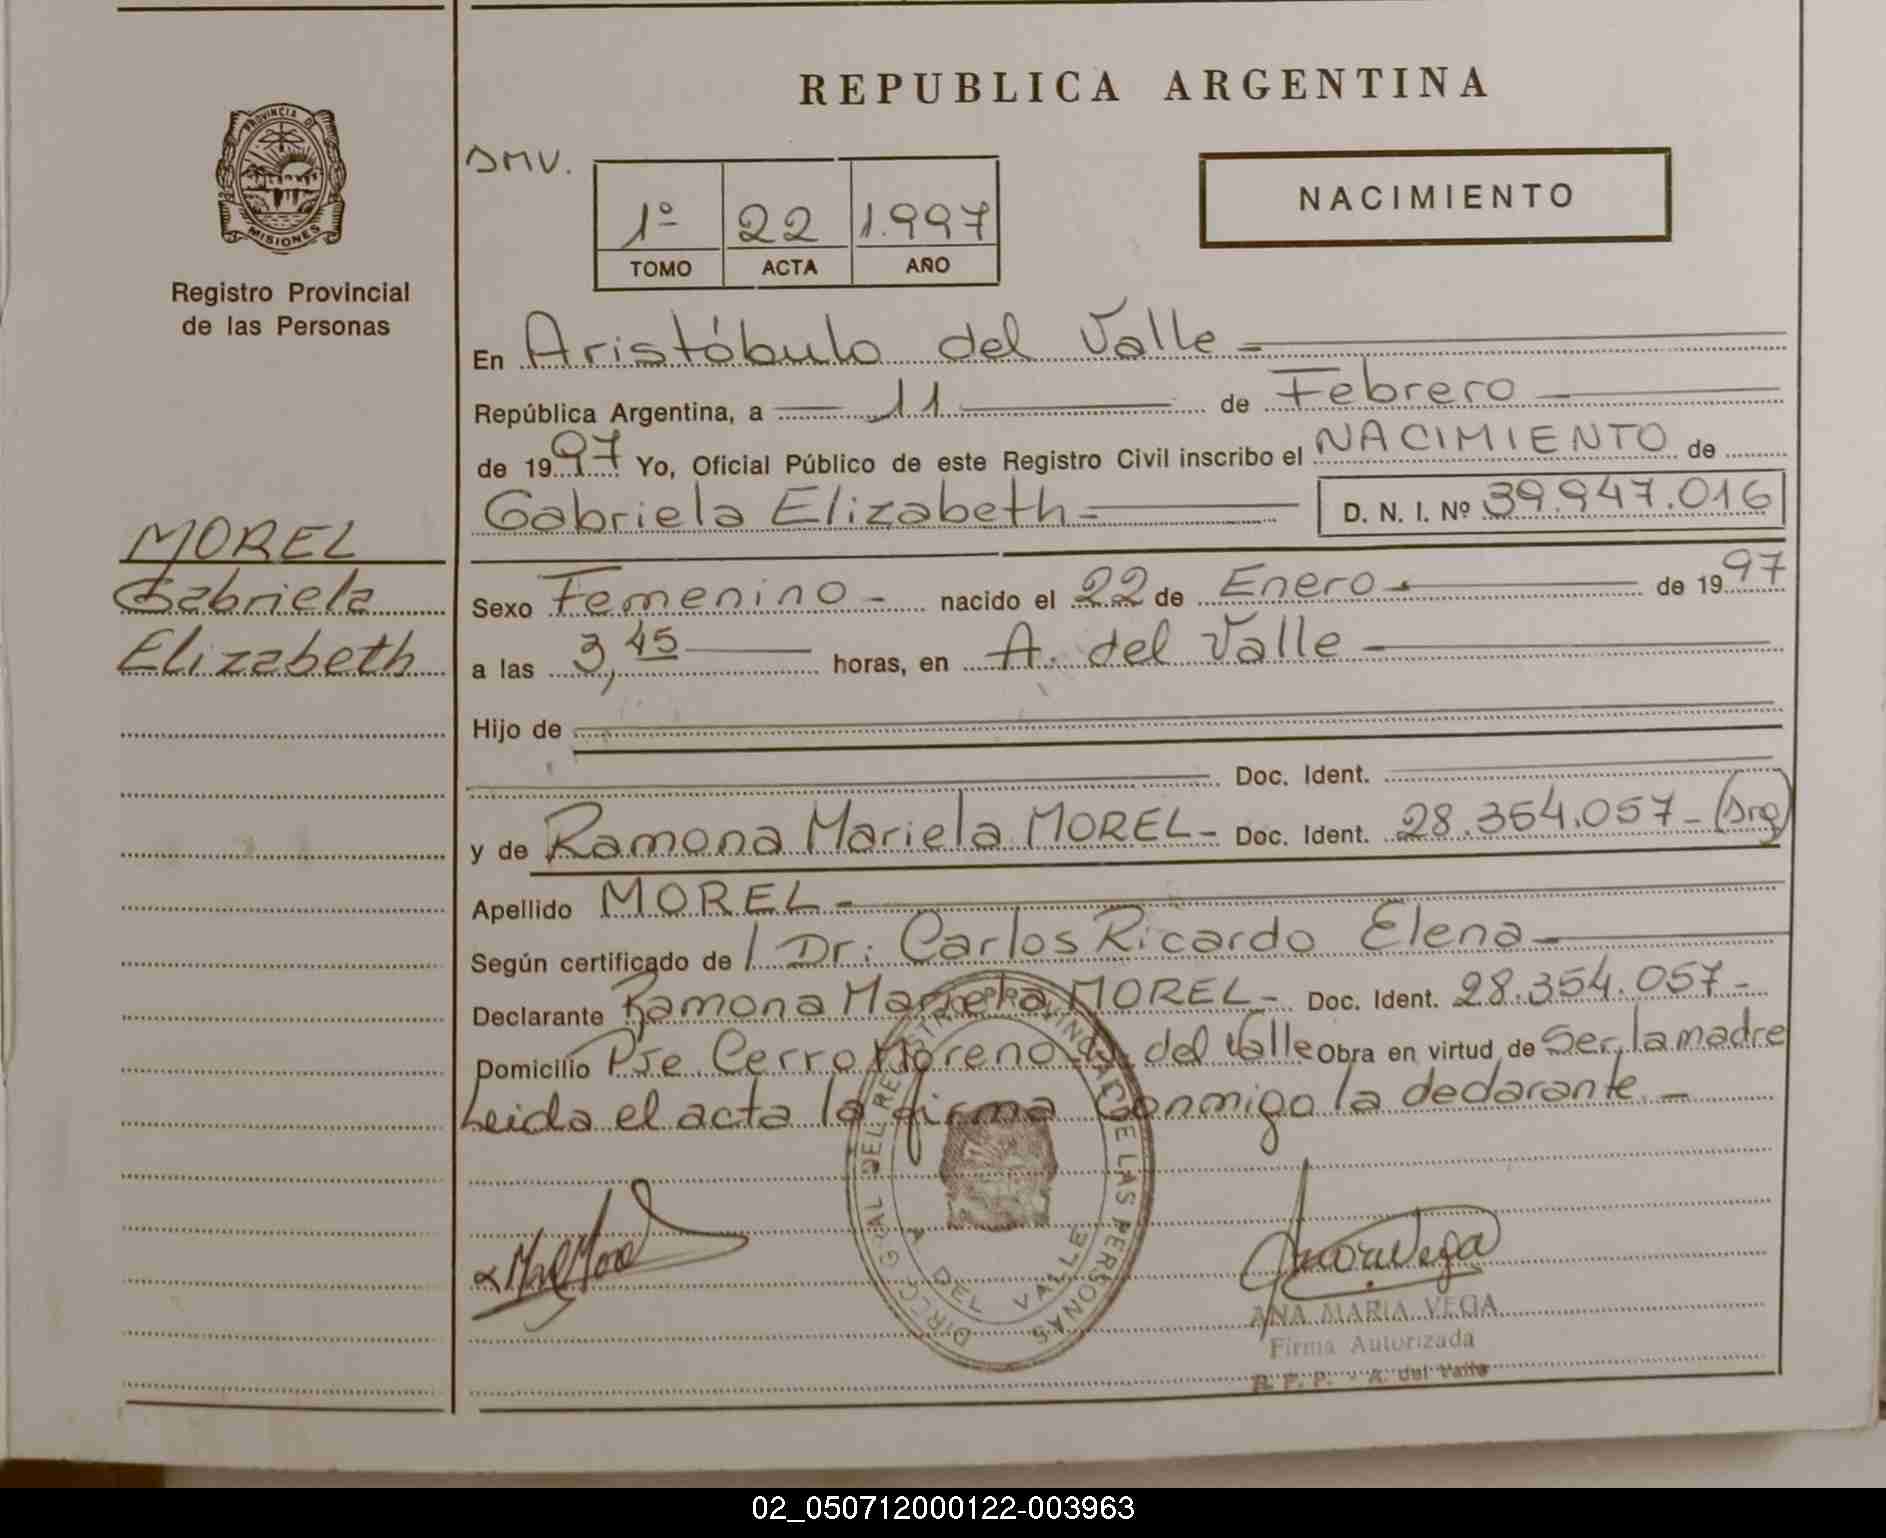 REPUBLICA ARGENTINA
PROVINCIA DE
MISIONES
Registro Provincial
de las Personas
SMV.
1º 22 1.997
TOMO ACTA AÑO
NACIMIENTO
En Aristóbulo del Valle
República Argentina, a 11 de Febrero
de 1997 Yo, Oficial Público de este Registro Civil inscribo el NACIMIENTO de
Gabriela Elizabeth D. N. I. Nº 39.947.016
MOREL
Gabriela
Elizabeth
Sexo Femenino - nacido el 22 de Enero de 1997
a las 3,45 horas, en A. del Valle
Hijo de
Doc. Ident.
y de Ramona Mariela MOREL - Doc. Ident. 28.354.057 - (Arg)
Apellido MOREL -
Según certificado de Dr: Carlos Ricardo Elena
Declarante Ramona Mariela MOREL - Doc. Ident. 28.354.057 -
Domicilio Pje. Cerro Moreno A. del Valle Obra en virtud de Ser la madre
Leida el acta la firma conmigo la declarante. -
DIREC. GRAL DEL REGISTRO PROVINCIAL DE LAS PERSONAS
A. DEL VALLE
ANA MARIA VEGA
Firma Autorizada
R. P. P. - A. del Valle
02_050712000122-003963